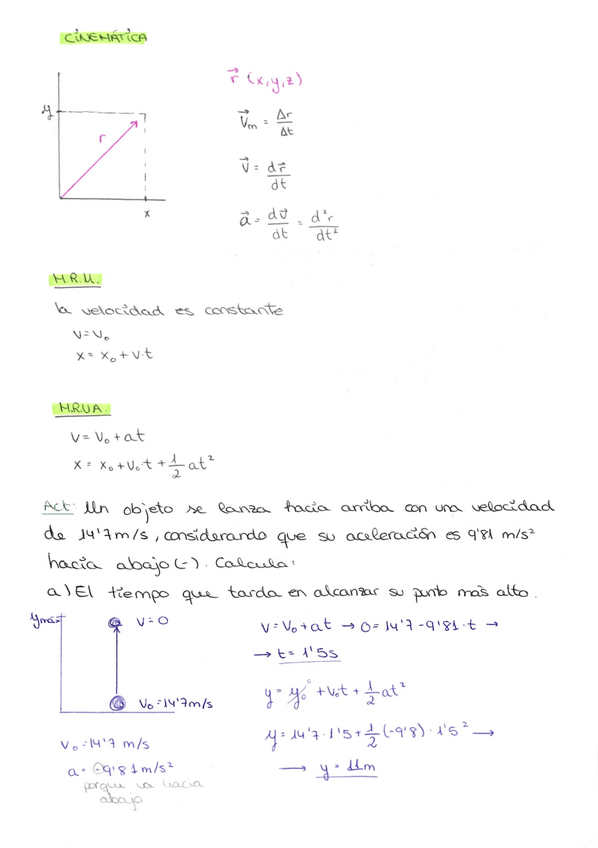 CINEMÁTICA
y
r
x
r⃗ (x,y,z)
V⃗m = Δr/Δt
V⃗ = dr⃗/dt
a⃗ = dv⃗/dt = d²r/dt²
M.R.U.
la velocidad es constante
V=V₀
x = x₀ + v·t
M.R.U.A.
V = V₀ + at
x = x₀ + V₀·t + 1/2 at²
Act: Un objeto se lanza hacia arriba con una velocidad
de 14'7m/s, considerando que su aceleración es 9'81 m/s²
hacia abajo (-). Calcula:
a) El tiempo que tarda en alcanzar su punto más alto.
ymáx
V=0
V₀=14'7m/s
V₀=14'7 m/s
a= -9'81m/s²
porque va hacia
abajo
V=V₀+at → 0=14'7-9'81·t →
→ t= 1'5s
y = y₀⁰ + V₀t + 1/2 at²
y= 14'7·1'5+1/2(-9'8)·1'5² →
→ y = 11m